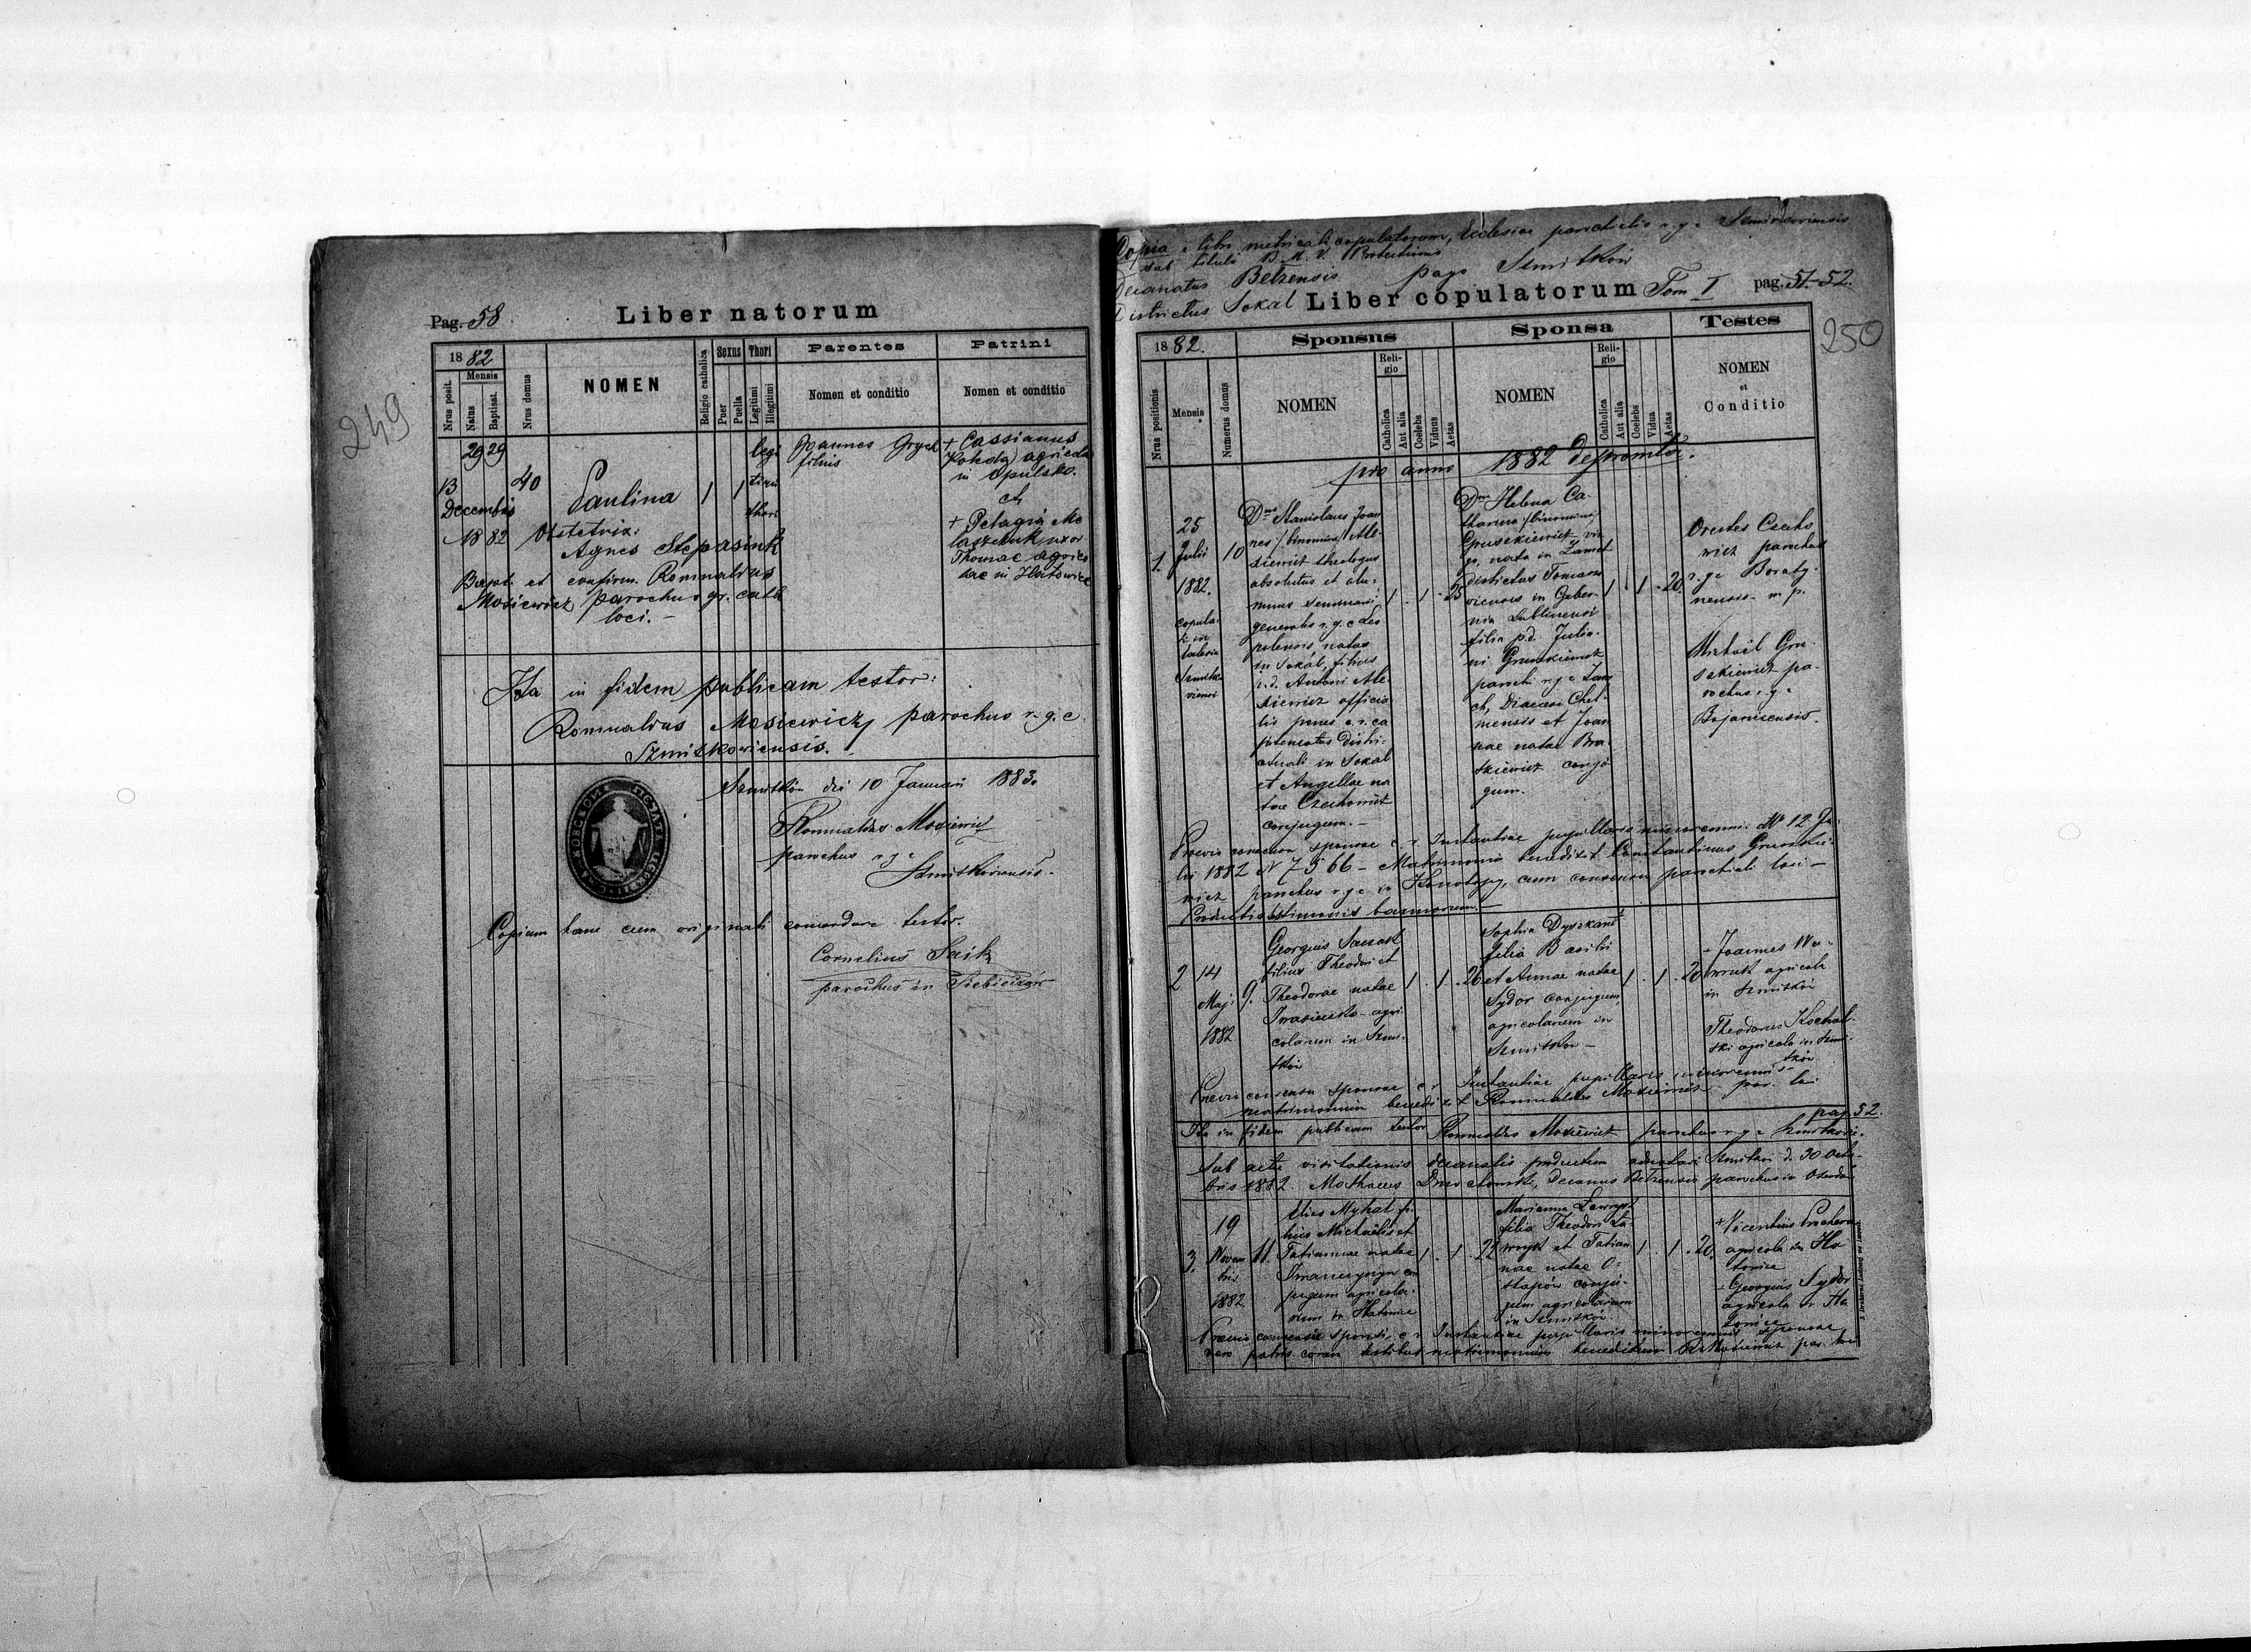 249
Pag. 58
Liber natorum
18 82
Nrus posit.
Mensis
Natus
Baptisat.
Nrus domus
NOMEN
Religio catholica
Sexus
Puer
Puella
Thori
Legitimi
Illegitimi
Parentes
Nomen et conditio
Patrini
Nomen et conditio
29 29
13
Decembris
1882
40
Paulina
1
1
legi
timi
thori
Joannes Gryck
filius
+ Cassianus
agricola
in Opulsko.
et
+ Pelagia Me
laszczuk uxor
Thomae agrico
lae in Hatowice
Obstetrix:
Agnes Stepasiuk
Bapt. et confirm. Romualdus
Mosiewicz parochus gr. cath
loci.—
Ita in fidem publicam testor:
Romualdus Mosiewicz parochus r. g. c.
Szmitkoviensis.
Szmitków die 10 Januarii 1883.
Romualdus Mosiewicz
parochus r g c
Szmitkoviensis.
Copiam hanc cum originali concordare testor.
Cornelius Saik
parochus in
Copia e libro metricali copulatorum, Ecclesiae parochialis r. g. c.
sub titulo B. M. V. Protectionis
Decanatus Belzensis pago Szmitków
Districtus Sokal Liber copulatorum Tom I pag. 51-52.
250
18 82.
Nrus positionis
Mensis
Numerus domus
Sponsus
NOMEN
Religio
Catholica
Aut alia
Coelebs
Viduus
Aetas
Sponsa
NOMEN
Religio
Catholica
Aut alia
Coelebs
Vidua
Aetas
Testes
NOMEN
et
Conditio
pro anno 1882
1.
25
Julii
1882.
copula-
ti in
10
Stanislaus Joan
nes /binominis/ Ale-
xiewicz theologus
absolutus et alu-
mnus seminarii
generalis r. g. c Leo
poliensis, natus
in Sokal, filius
p.d. Antonii Ale-
xiewicz officia
lis penes c. r. ca
pitaneatus Distri-
ctuali in Sokal
et Angellae na
tae Czechowicz
conjugum.—
1 . 1 . 25
Helena Ca-
tharina /binominis/
Gruszkiewicz vir
go, nata in
Districtus Tomaszo
viensis in Guber-
nia Lublinensi
filia p.d. Julia-
ni Gruszkiewicz
parochi r g c
Diaecesi Chel-
mensis et Joan
nae natae Bra-
tkiewicz conju
gum.—
1 . 1 . 20.
Orestes Czecho
wicz parochus
r. g c Boraty-
nensis m p.
Michaël Gru-
szkiewicz pa-
rochus r. g c
Bojanicensis.
Previo consensu sponsae c. r. Instantiae pupillaris minorennis. 12 Ju-
lii 1882 N 7566 — Matrimonio benedixit Constantinus Gruszkie-
wicz parochus r. g. c in Konotopy, cum consensu parochiali loci —
Productis testimoniis bannorum.—
2
14
Maji
1882
9.
Georgius
filius Theodori et
Theodorae natae
agri-
colarum in Szmi-
tków
1 . 1 . 26
Sophia Dyszkant
filia Basilii
et Annae natae
Sydor conjugum
agricolarum in
Szmitków —
1 . 1 . 20
+ Joannes
agricola
in Szmitków
Theodorus
agricola in Szmi-
tków
Previo consensu sponsae c r Instantiae pupillaris minorennis
matrimonium benedixit Romualdus Mosiewicz par. loci
pag. 52.
Ita in fidem publicam testor Romualdus Mosiewicz parochus r g c
Sub actu visitationis decanalis productum Szmitków d. 30 Octo-
bris 1882. Mathaeus Decanus Belzensis parochus in
3.
19
Novem
bris
1882
11.
Elias Myhal fi-
lius Michaëlis et
Tatiannae natae
con
jugum agricola-
rum in Hatowice
1 . 1 . 22
Marianna
filia Theodori
et Tatian
nae natae O-
stapów conju-
gum agricolarum
in Szmitków.
1 . 1 . 20.
+ Vicentius
agricola in Ha
towice
Georgius Sydor
agricola in Ha
towice
Previo consensu sponsi, c r Instantiae pupillaris minorennis sponsae
vero patris coram testibus matrimonium benedixit R. Mosiewicz par. loci